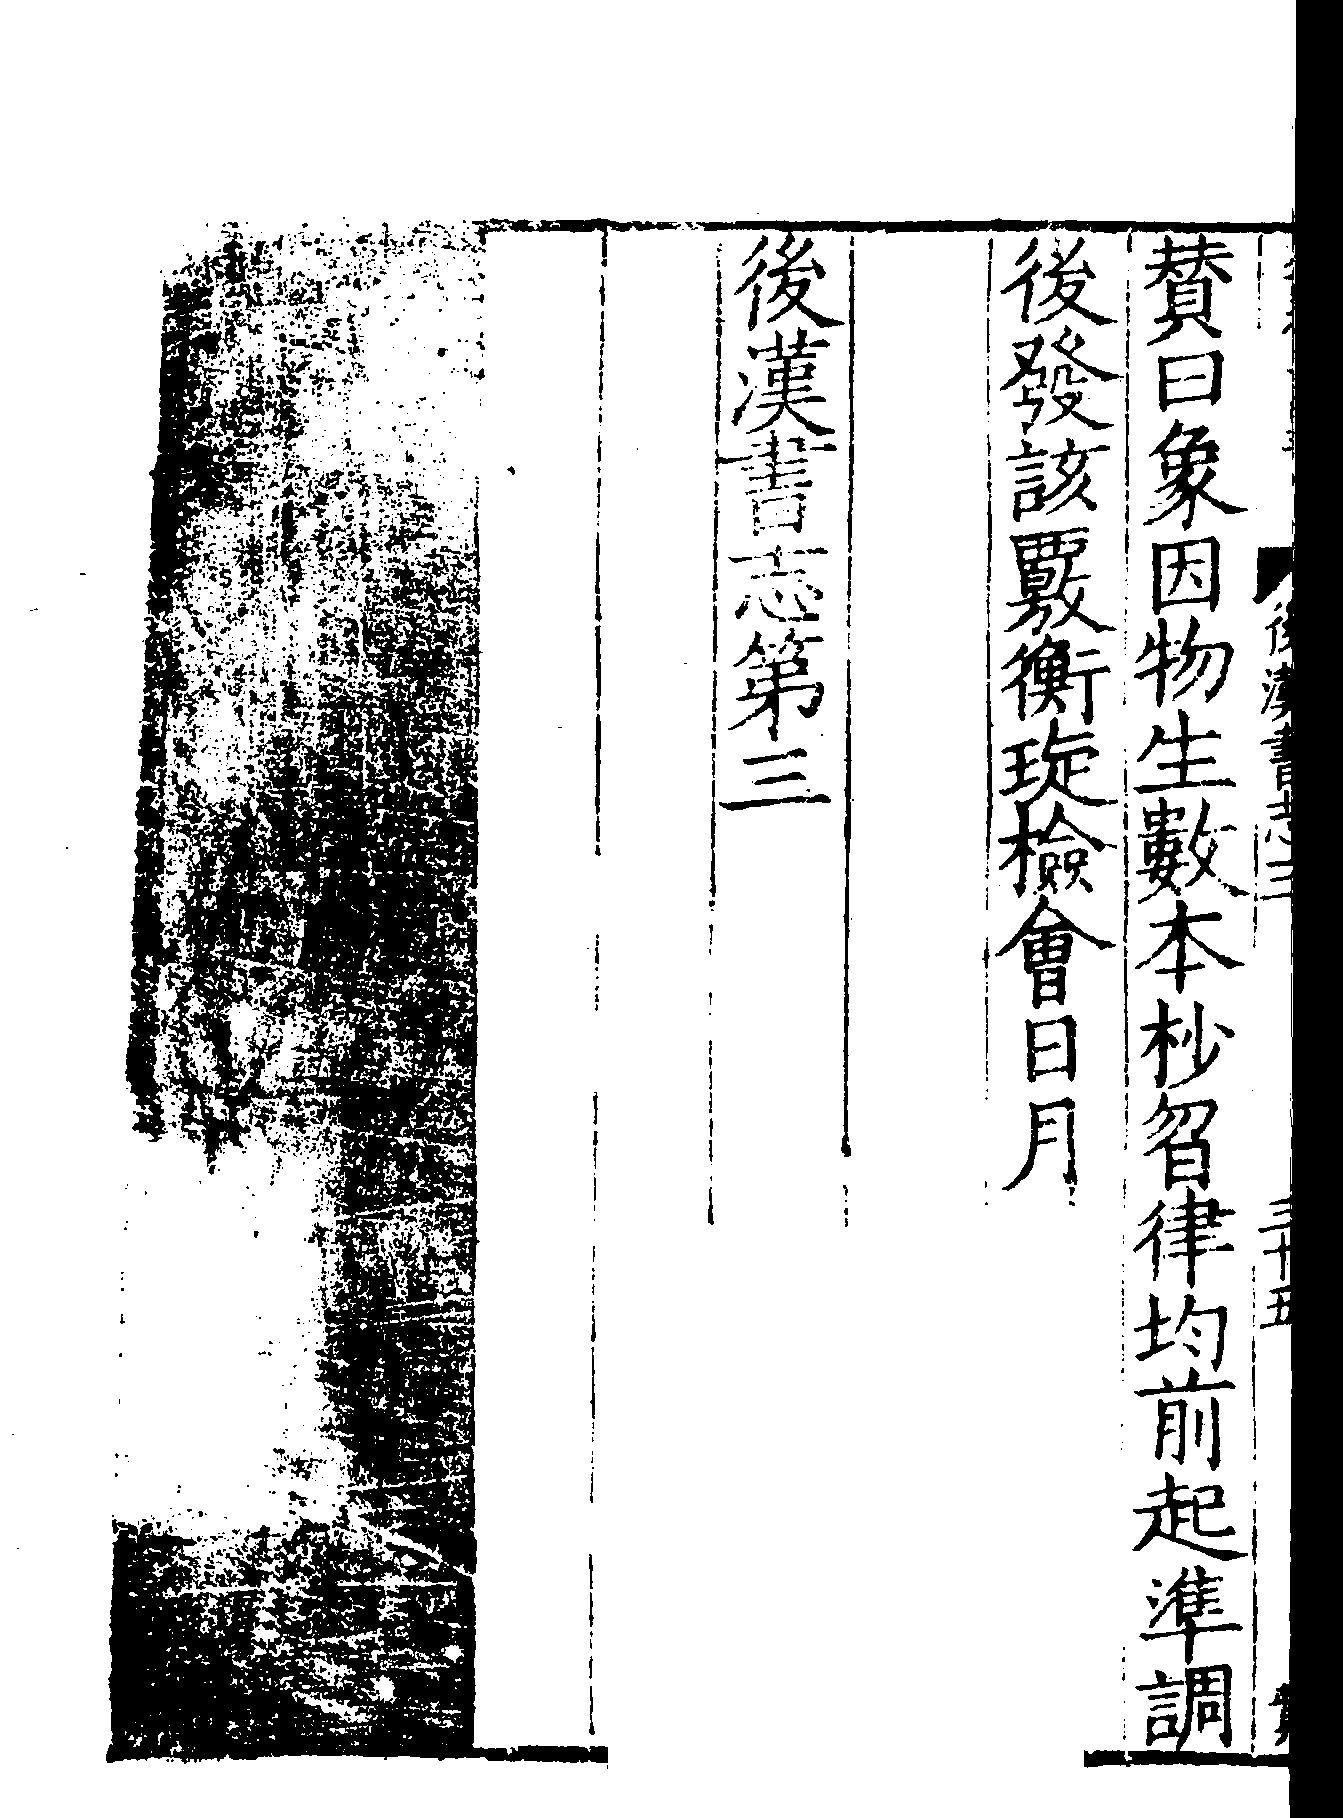 後漢書志三
三十五
賛曰象因物生數本杪曶律均前起準調
後發該覈衡琁檢會日月
後漢書志第三